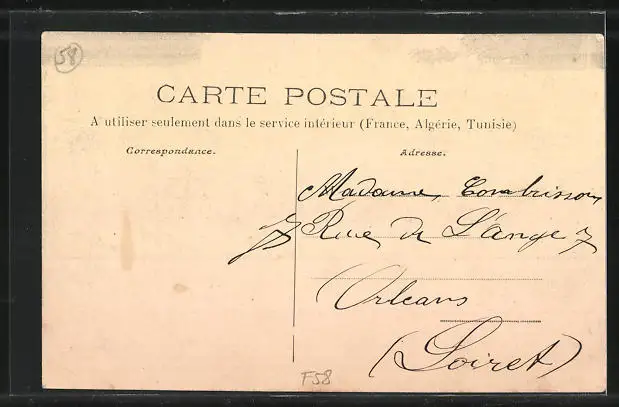 58
CARTE POSTALE
A utiliser seulement dans le service intérieur (France, Algérie, Tunisie)
Correspondance.
Adresse.
Madame Combrisson
7 Rue de L'ange 7
Orleans
(Loiret)
F58